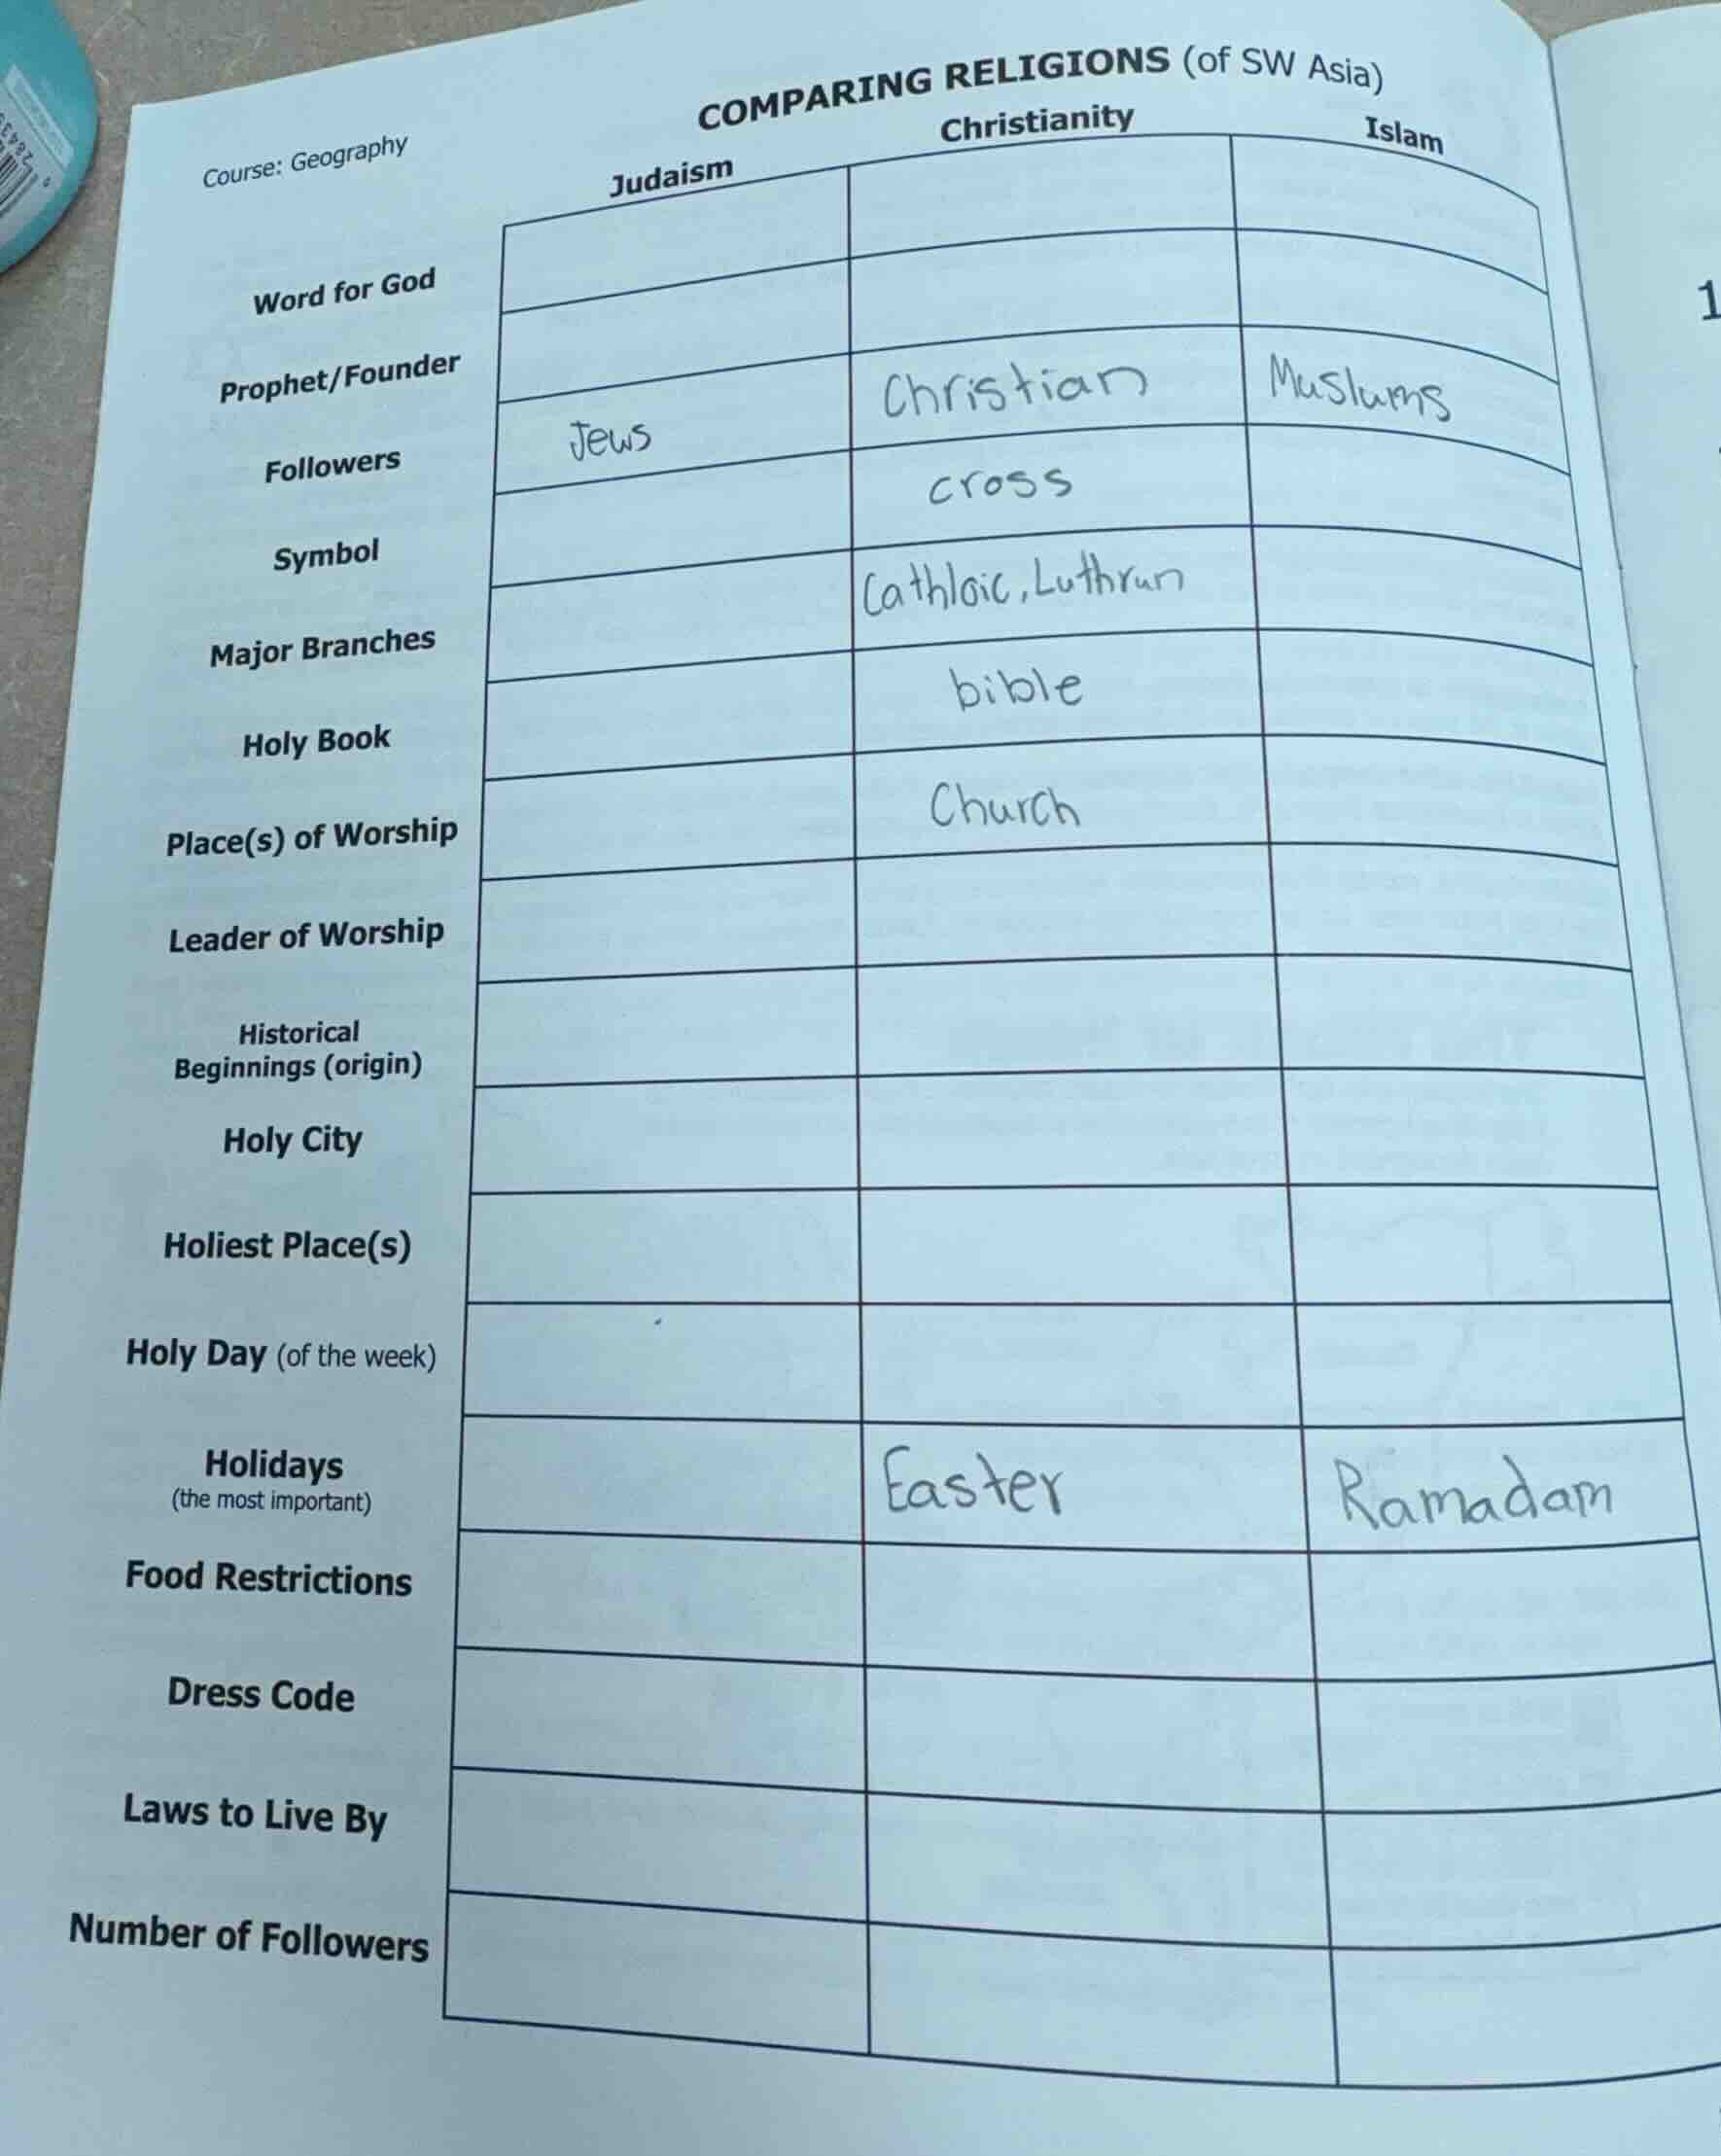 COMPARING RELIGIONS (of SW Asia)
Course: Geography
Judaism Christianity Islam
Word for God
Prophet/Founder
Followers Jews Christian Muslums
Symbol cross
Major Branches Cathloic, Luthrun
Holy Book bible
Place(s) of Worship Church
Leader of Worship
Historical
Beginnings (origin)
Holy City
Holiest Place(s)
Holy Day (of the week)
Holidays Easter Ramadam
(the most important)
Food Restrictions
Dress Code
Laws to Live By
Number of Followers
1